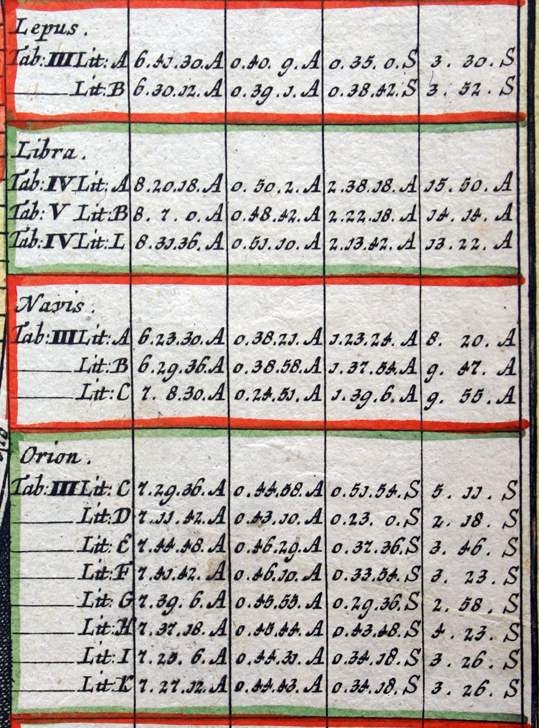 Lepus.
Tab: III Lit: A 6.41.30.A 0.40. 9.A 0.35. 0.S 3. 30. S
Lit: B 6.30.12.A 0.39. 1.A 0.38.42.S 3. 52. S
Libra.
Tab: IV Lit: A 8.20.18.A 0. 50. 2.A 2.38.18.A 15. 50. A
Tab: V Lit: B 8. 7. 0.A 0.48.42.A 2.22.18.A 14. 14. A
Tab: IV Lit: L 8.31.36.A 0.51.10.A 2.13.42.A 13. 22. A
Navis.
Tab: III Lit: A 6.23.30.A 0.38.21.A 1.23.24.A 8. 20. A
Lit: B 6.29.36.A 0.38.58.A 1.37.54.A 9. 47. A
Lit: C 7. 8.30.A 0.24.51.A 1.39.6.A 9. 55. A
Orion.
Tab: III Lit: C 7.29.36.A 0.44.58.A 0.51.54.S 5. 11. S
Lit: D 7.11.42.A 0.43.10.A 0.23. 0.S 2. 18. S
Lit: E 7.44.48.A 0.46.29.A 0.37.36.S 3. 46. S
Lit: F 7.41.42.A 0.46.10.A 0.33.54.S 3. 23. S
Lit: G 7.39. 6.A 0.45.55.A 0.29.36.S 2. 58. S
Lit: H 7.37.18.A 0.45.44.A 0.43.48.S 4. 23. S
Lit: I 7.25. 6.A 0.44.31.A 0.34.18.S 3. 26. S
Lit: K 7.27.12.A 0.44.43.A 0.34.18.S 3. 26. S